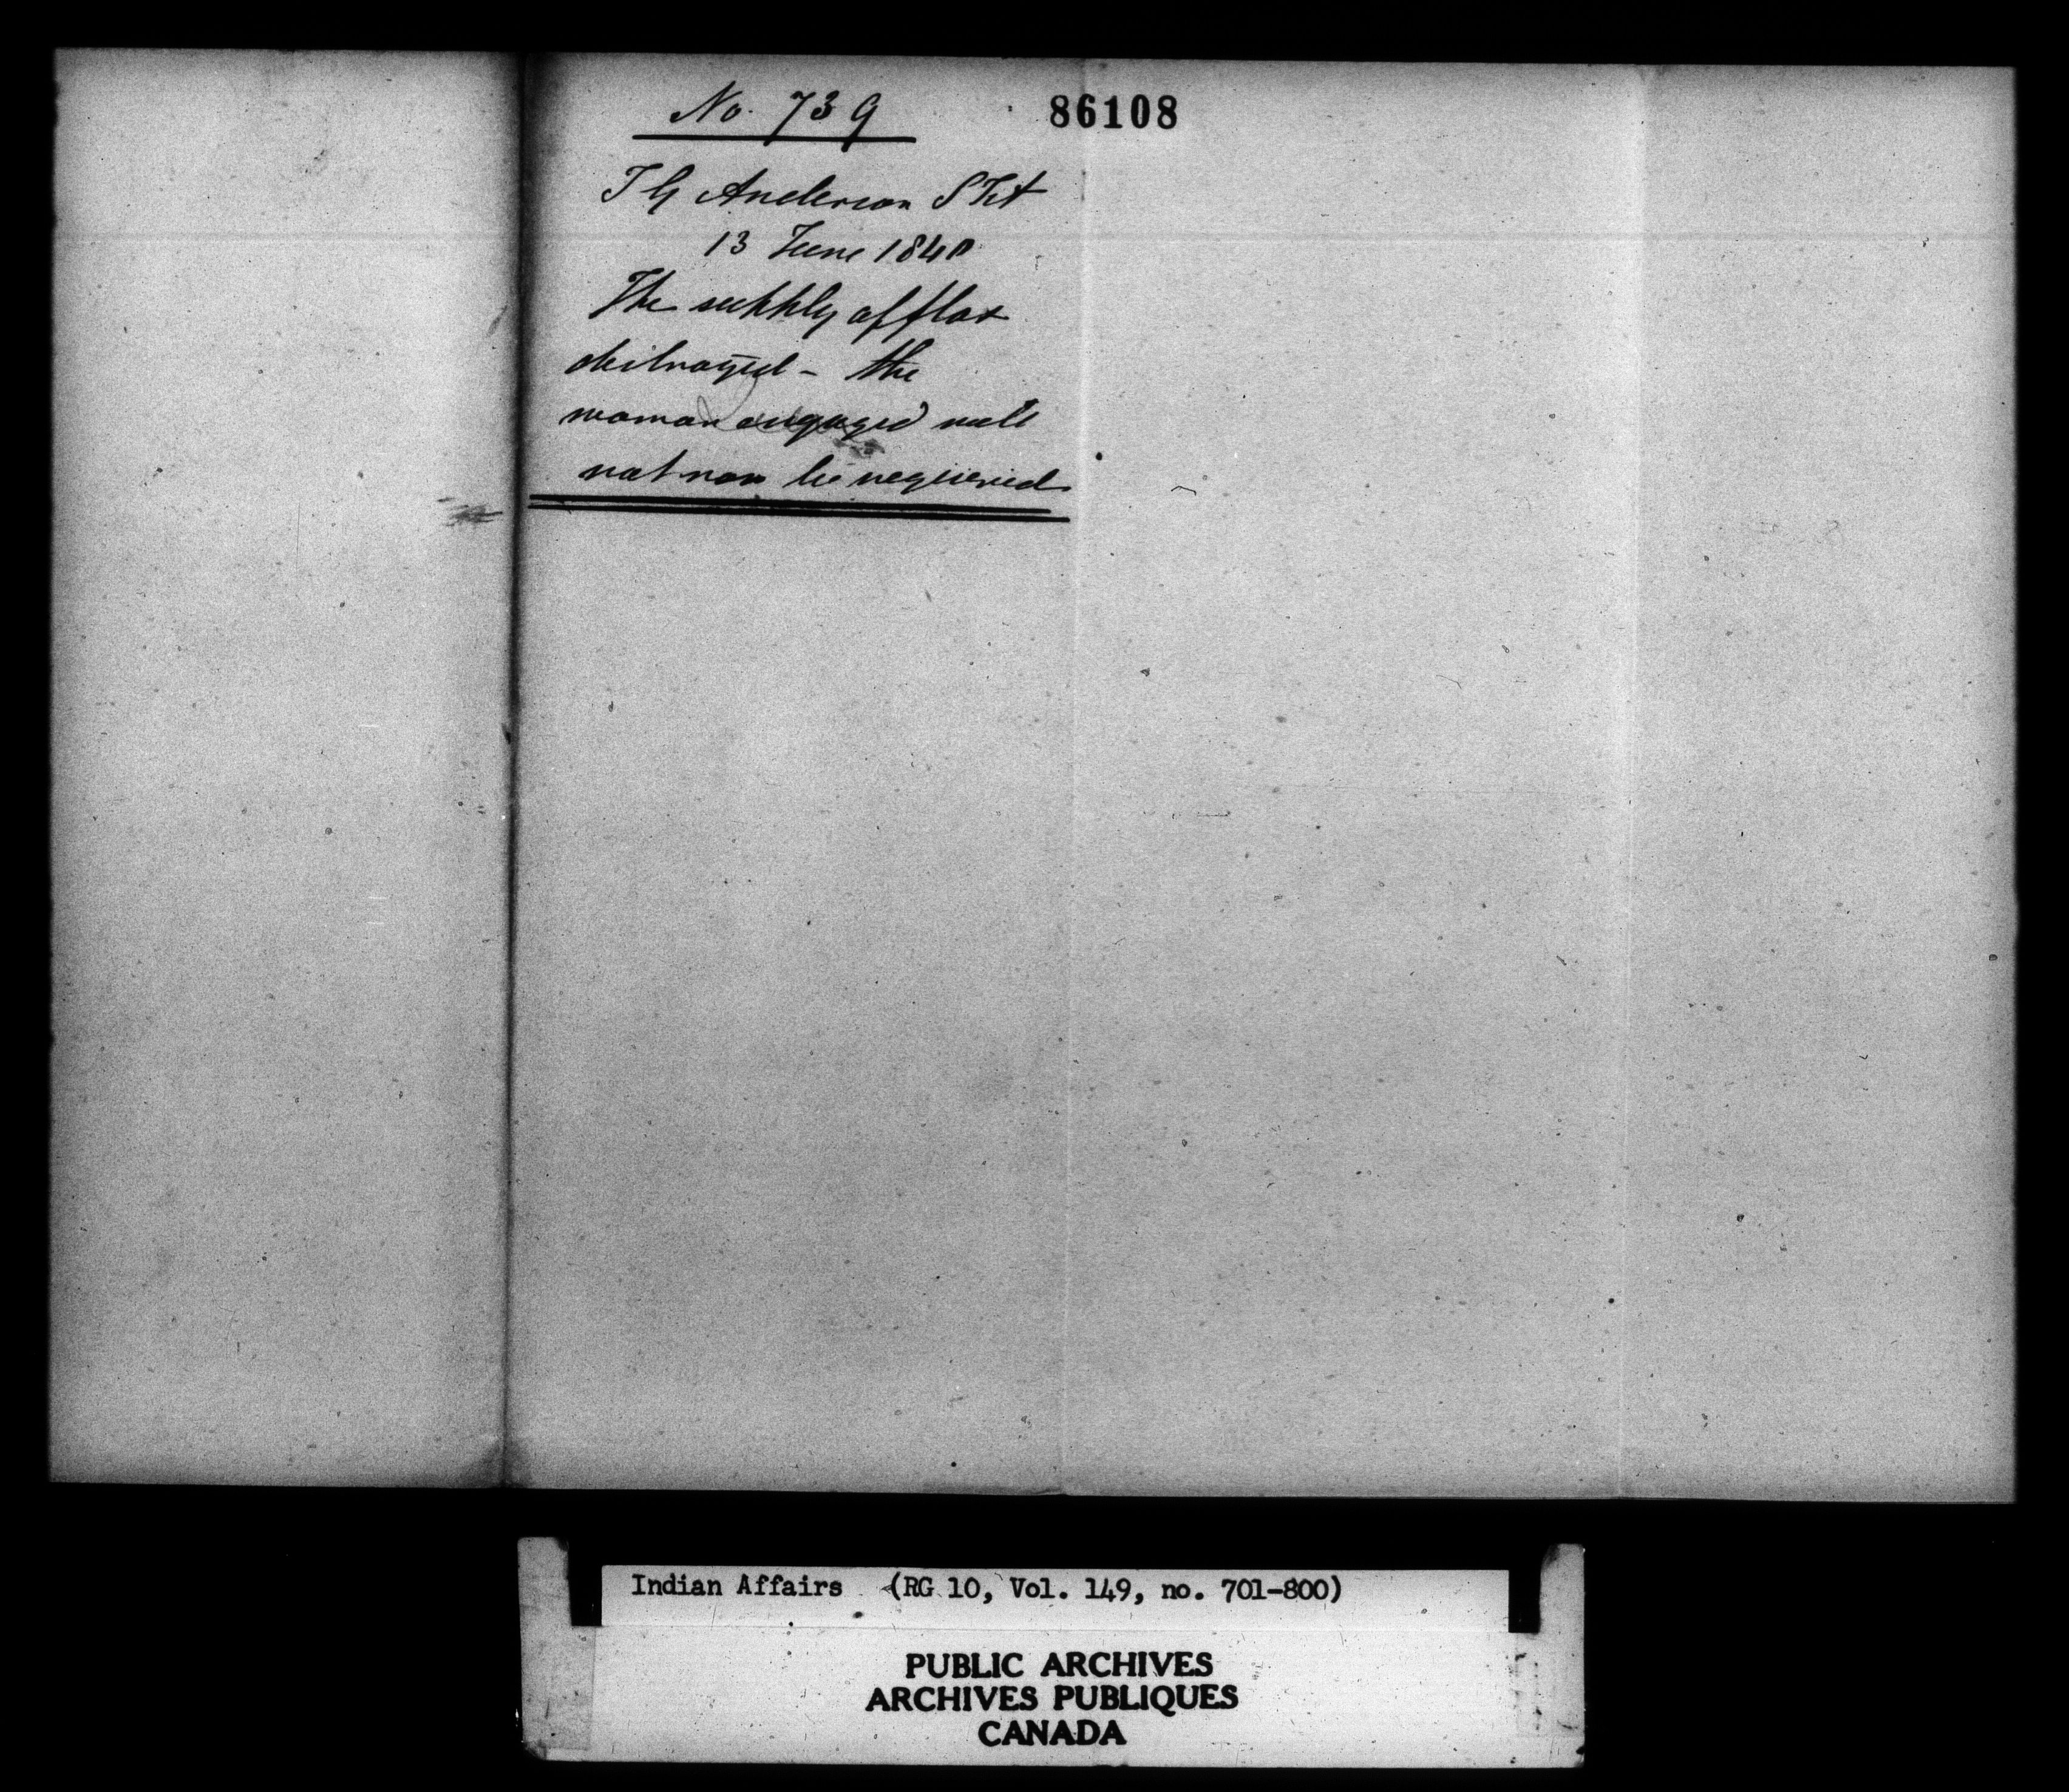 No. 739
86108
T G Anderson SIA
13 June 1840
The supply of flax
destroyed - the
woman engaged will
not now be required
Indian Affairs (RG 10, Vol. 149, no. 701-800)
PUBLIC ARCHIVES
ARCHIVES PUBLIQUES
CANADA